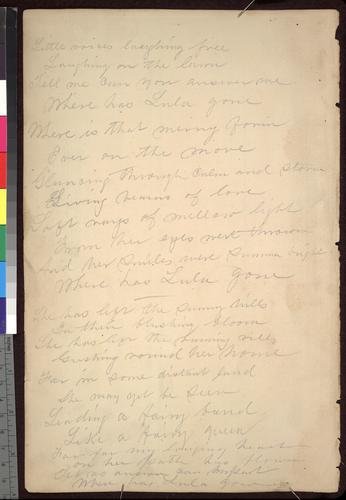 Little voices laughing free
Laughing on the lawn
Tell me can you answer me
Where has Lula gone
Where is that merry form
Ever on the move
Glancing through calm and storm
Giving beams of love
Soft rays of mellow light
From her eyes were thrown
And her smiles were summer bright
Where has Lula gone
She has left the sunny hills
In their blushing bloom
She has left the running rills
Gushing round her home
Far in some distant land
She may yet be seen
Leading a fairy band
Like a fairy queen
Far far my longing heart
on her path has flown
answer
Where has Lula gone